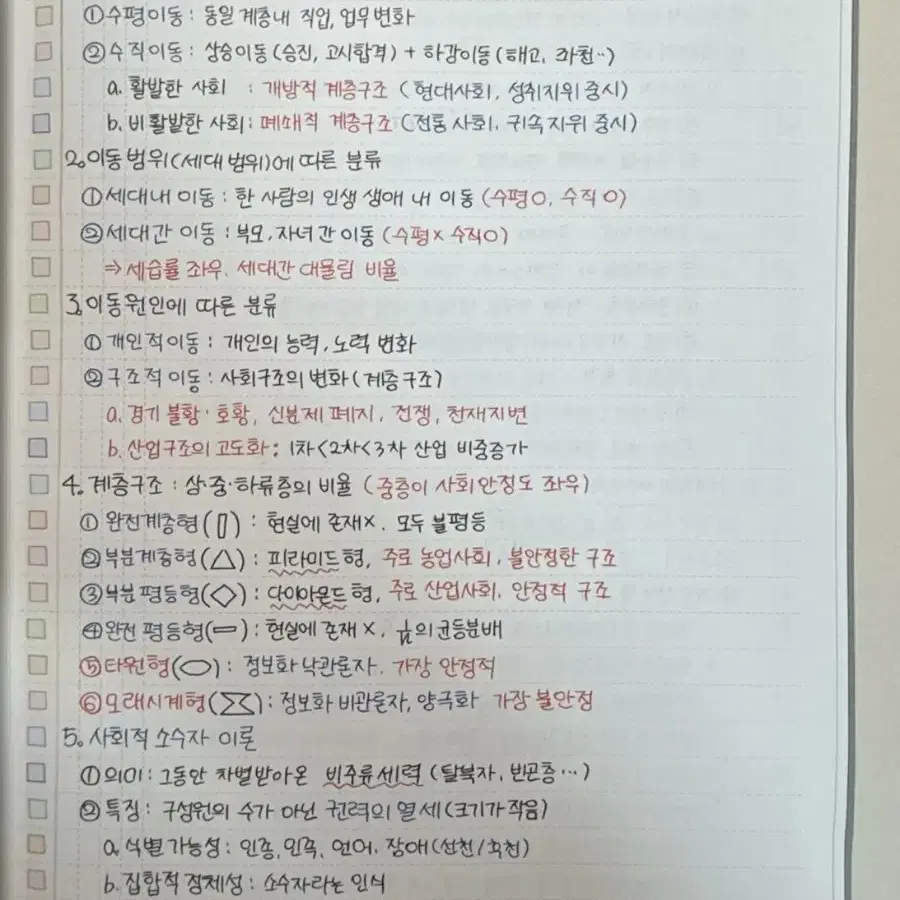 ①수평이동: 동일 계층내 직업, 업무변화
②수직이동: 상승이동(승진, 고시합격) + 하강이동(해고, 좌천··)
a. 활발한 사회 : 개방적 계층구조 (현대사회, 성취지위 중시)
b. 비활발한 사회: 폐쇄적 계층구조(전통 사회, 귀속지위 중시)
2. 이동범위(세대 범위)에 따른 분류
①세대내 이동: 한 사람의 인생 생애 내 이동 (수평O, 수직O)
②세대간 이동: 부모, 자녀간 이동 (수평× 수직O)
⇒ 세습률 좌우, 세대간 대물림 비율
3. 이동원인에 따른 분류
①개인적이동: 개인의 능력, 노력 변화
②구조적 이동: 사회구조의 변화(계층구조)
a. 경기 불황·호황, 신분제 폐지, 전쟁, 천재지변
b. 산업구조의 고도화: 1차<2차<3차 산업 비중증가
4. 계층구조: 상·중·하류층의 비율 (중층이 사회안정도 좌우)
① 완전계층형(▯): 현실에 존재×, 모두 불평등
②부분계층형(△): 피라미드형, 주로 농업사회, 불안정한 구조
③부분평등형(◇): 다이아몬드형, 주로 산업사회, 안정적 구조
④완전 평등형(▭): 현실에 존재×, 1/n의 균등분배
⑤타원형(⬭): 정보화 낙관론자, 가장 안정적
⑥모래시계형(⧖): 정보화 비관론자, 양극화 가장 불안정
5. 사회적 소수자 이론
①의미: 그동안 차별받아온 비주류세력 (탈북자, 빈곤층···)
②특징: 구성원의 수가 아닌 권력의 열세(크기가 작음)
a. 식별가능성: 인종, 민족, 언어, 장애(선천/후천)
b. 집합적 정체성: 소수자라는 인식